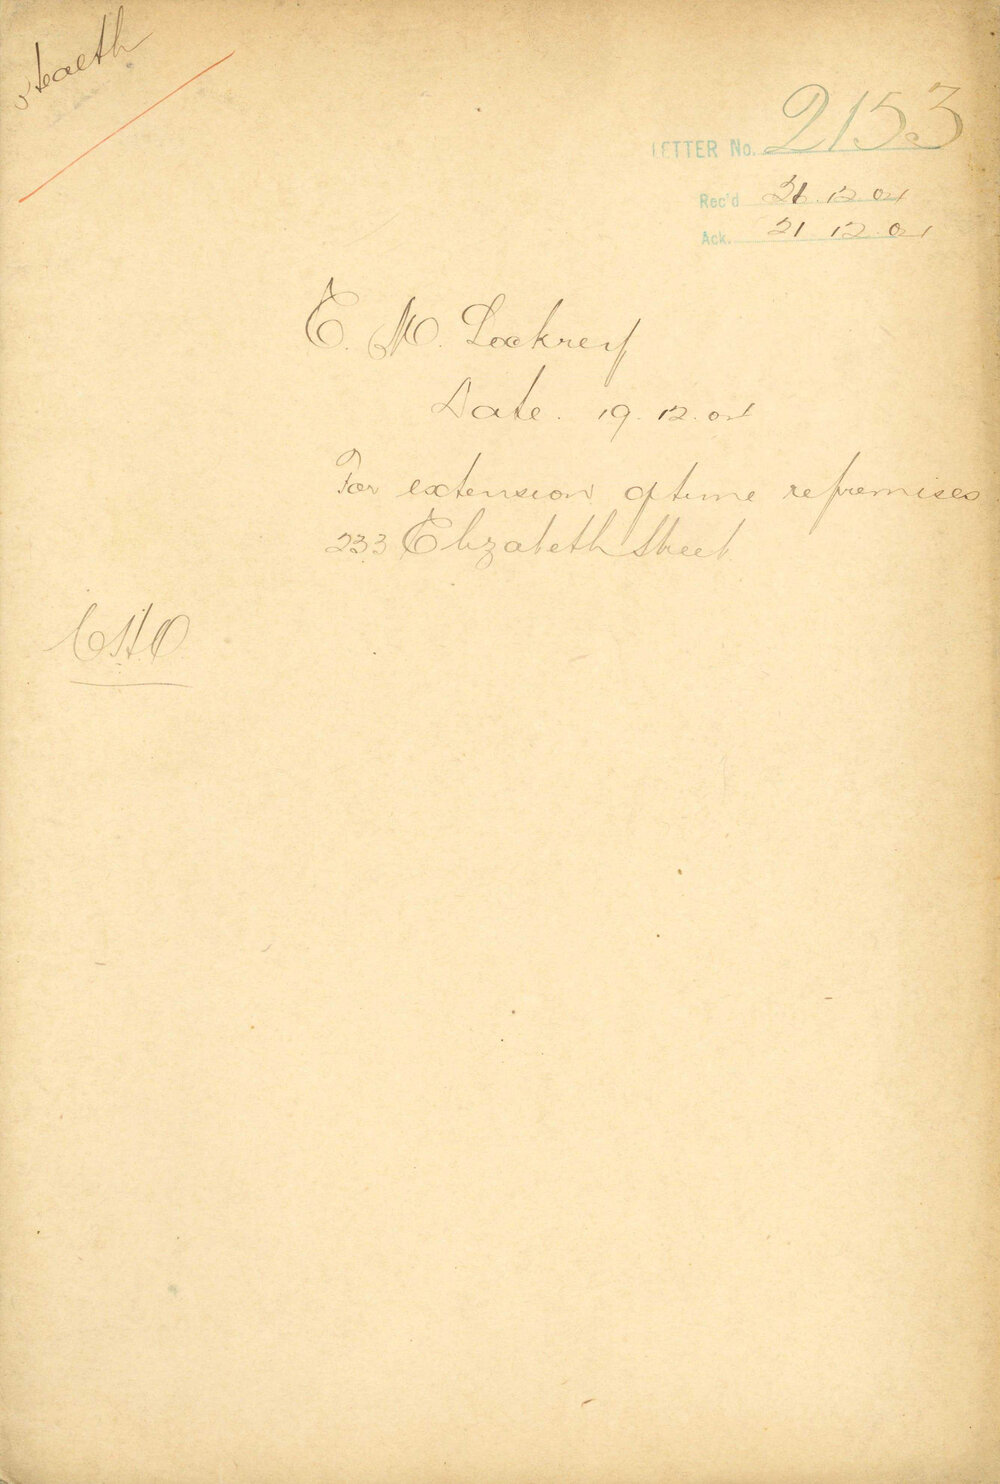 Health
LETTER No. 2153
Rec'd 21.12.04
Ack. 21 12 04
E. M. Lockrey
Date. 19.12.04
For extension of time re premises
233 Elizabeth Street
CHO